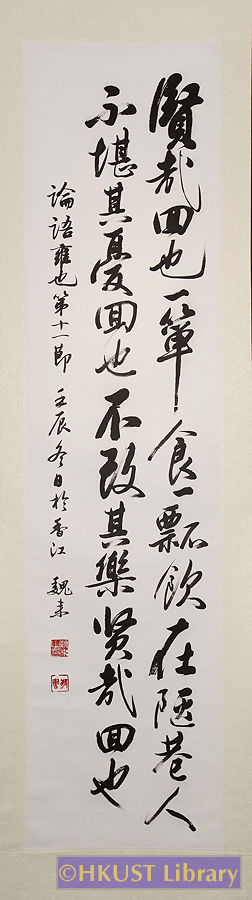 賢哉回也一簞食一瓢飲在陋巷人
不堪其憂回也不改其樂贤哉回也
論語雍也第十一節 壬辰冬日於香江 魏耒
©HKUST Library